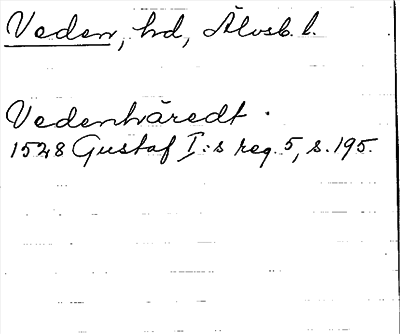 Veden, hd, Älvsb. l.
Vedenhäredt.
1528 Gustaf I:s reg. 5, s. 195.